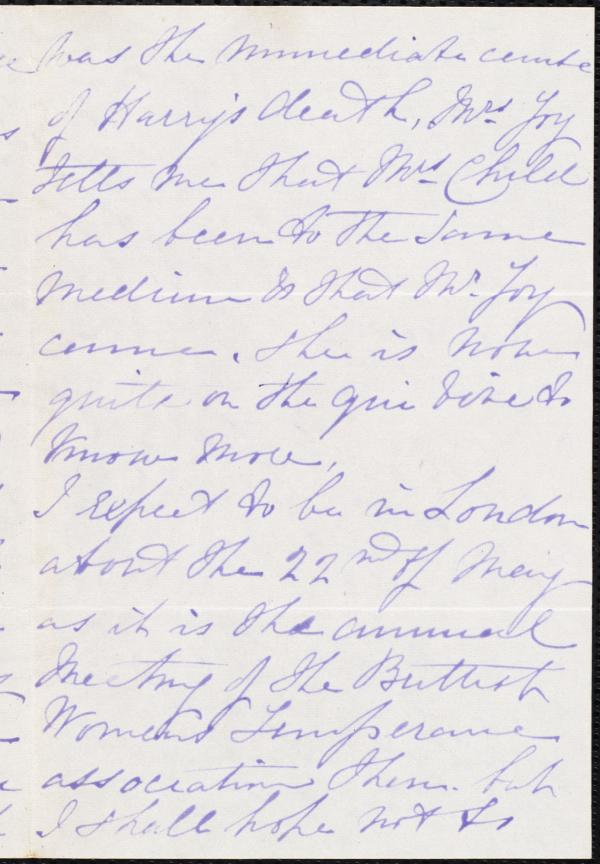 was the immediate cause
of Harry's death, Mrs. Joy
tells me that Mrs. Child
has been to the same
medium to that Mr. Joy
came. She is now
quite on the qui vive to
know more,
I expect to be in London
about the 22nd of May
as it is the annual
Meeting of the British
Women's Temperance
association then. but
I shall hope not to